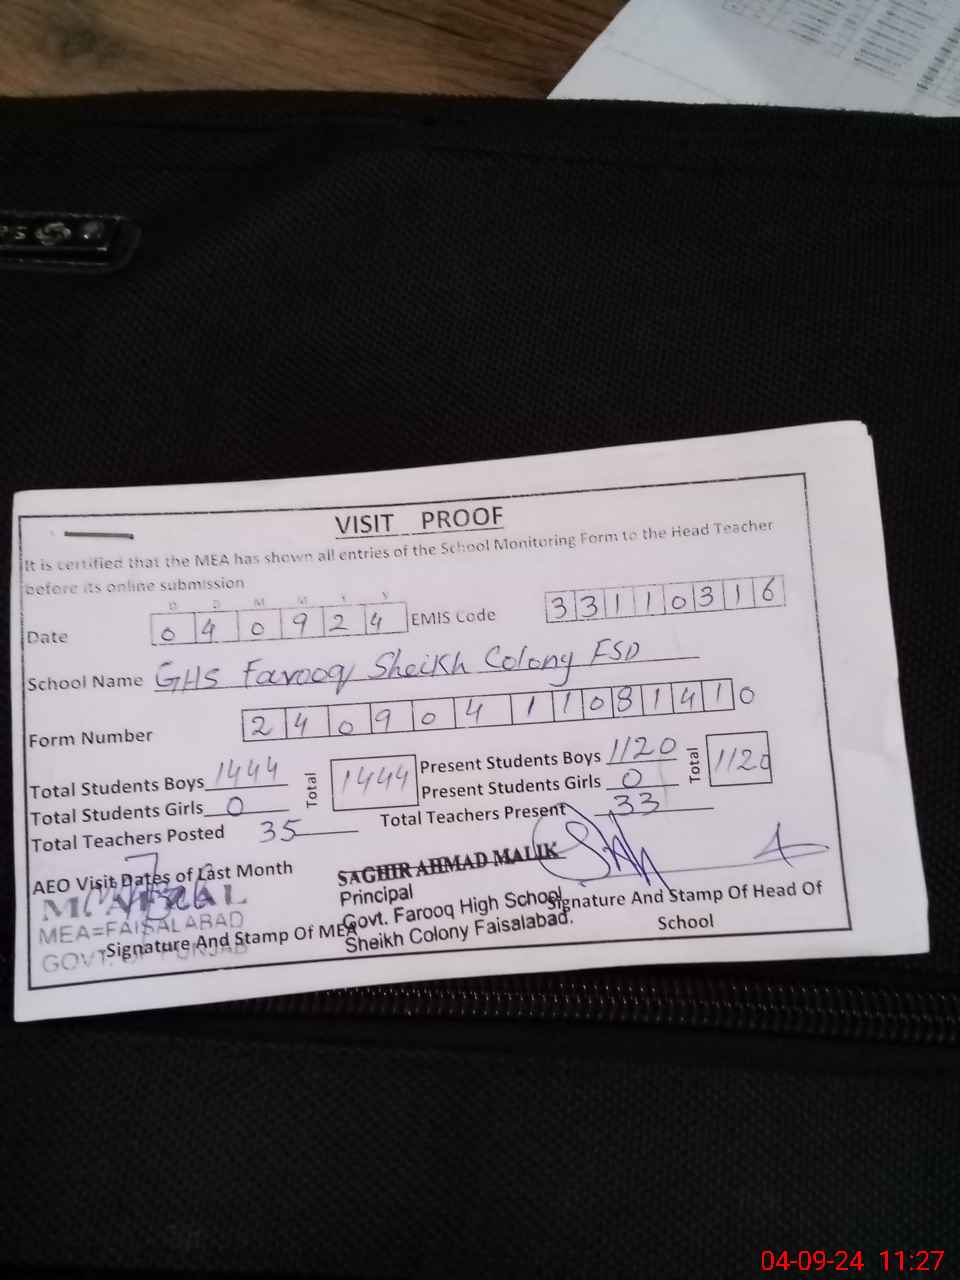 VISIT PROOF
It is certified that the MEA has shown all entries of the School Monitoring Form to the Head Teacher
before its online submission
D D M M Y Y
Date 0 4 0 9 2 4 EMIS Code 3 3 1 1 0 3 1 6
School Name GHS Farooq Sheikh Colony FSD
Form Number 2 4 0 9 0 4 1 1 0 8 1 4 1 0
Total Students Boys 1444 Total 1444 Present Students Boys 1120 Total 1120
Total Students Girls 0 Present Students Girls 0
Total Teachers Posted 35 Total Teachers Present 33
AEO Visit Dates of Last Month
SAGHIR AHMAD MALIK
Principal
Govt. Farooq High School
Sheikh Colony Faisalabad.
MEA=FAISALABAD
GOVT. OF PUNJAB
Signature And Stamp Of MEA
Signature And Stamp Of Head Of
School
04-09-24 11:27